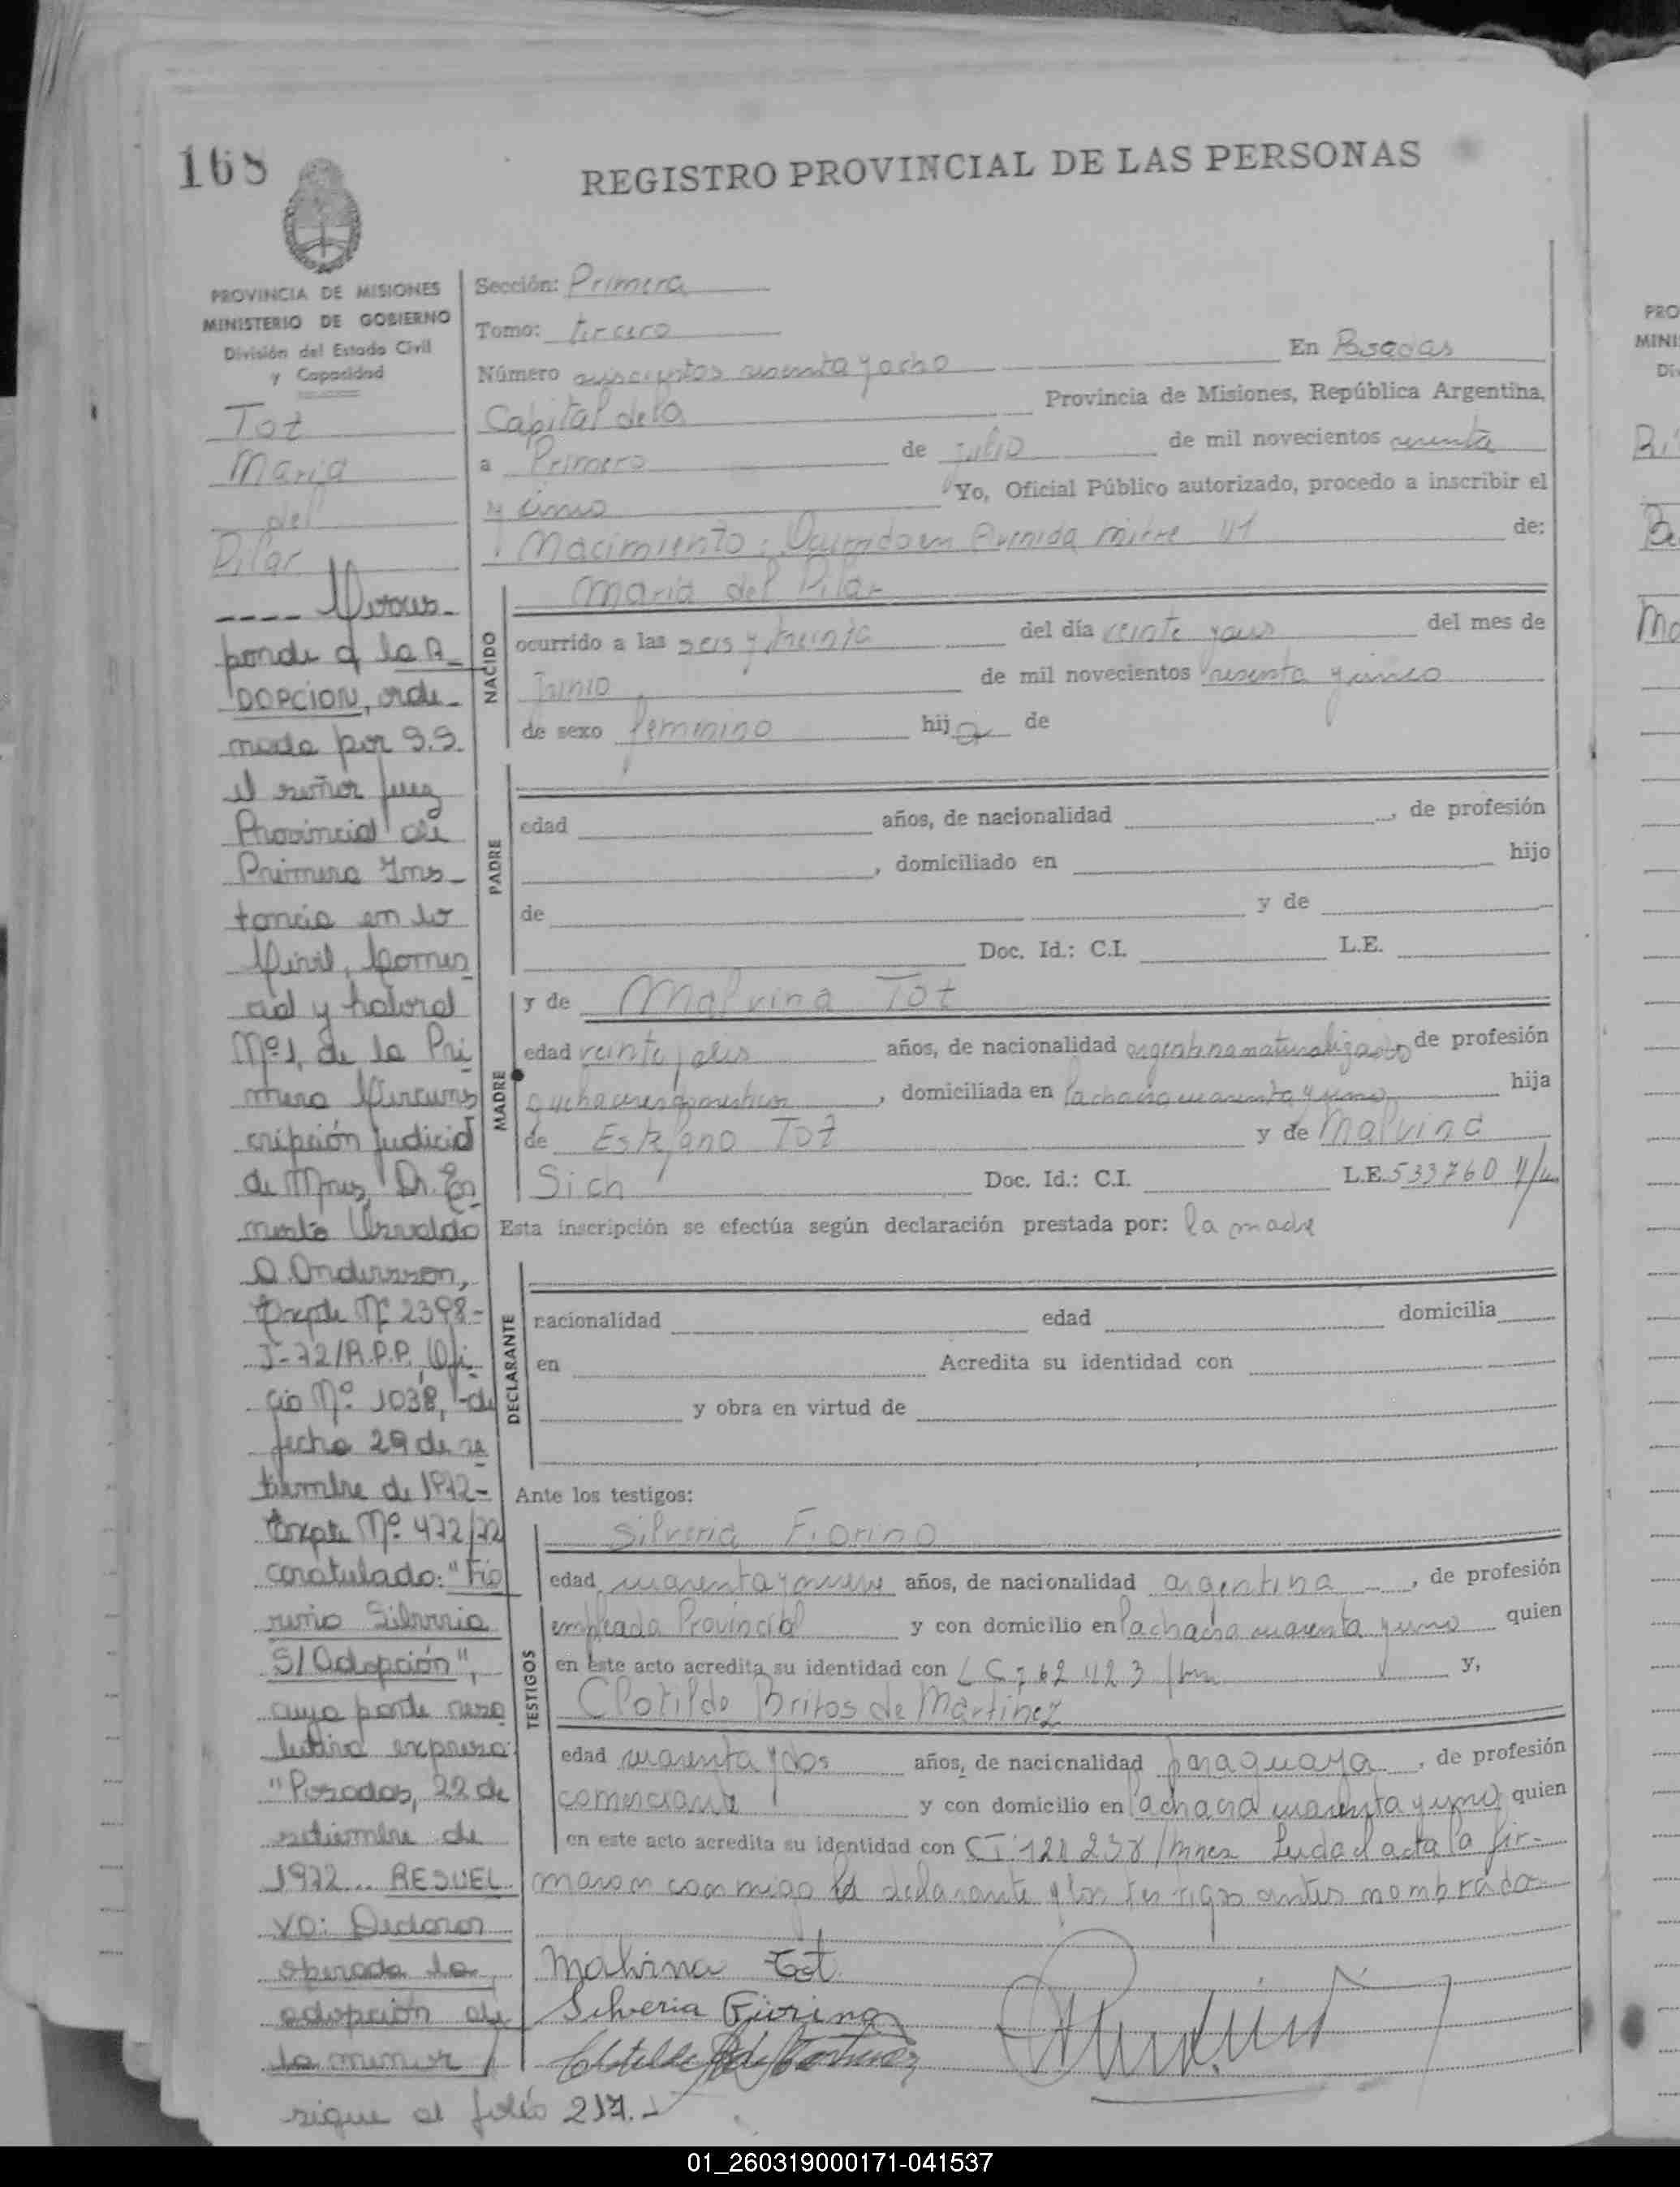 168
REGISTRO PROVINCIAL DE LAS PERSONAS
PROVINCIA DE MISIONES
MINISTERIO DE GOBIERNO
División del Estado Civil
y Capacidad
Tot
Maria
del
Pilar
---- Corres-
ponde a la A-
DOPCION, orde-
nada por S.S.
el señor Juez
Provincial de
Primera Ins-
tancia en lo
Civil, Comer
cial y Laboral
Nº 1, de la Pri
mera Circuns
cripción Judicial
de Mnes, Dr. Er
nesto Osvaldo
Andersson,
Expte Nº 2398-
J-72/R.P.P. Ofi
cio Nº 1038, de
fecha 29 de se
tiembre de 1972-
Expte Nº 472/72
caratulado: "Fio
rino Silveria
S/Adopción",
cuya parte reso
lutiva expresa:
"Posadas, 22 de
setiembre de
1972... RESUEL
VO: Declarar
operada la
adopción de
la menor
sigue al folio 217.-
Sección: Primera
Tomo: tercero
Número seiscientos sesenta y ocho En Posadas
Capital de la Provincia de Misiones, República Argentina,
a Primero de julio de mil novecientos sesenta
y cinco Yo, Oficial Público autorizado, procedo a inscribir el
Nacimiento: Ocurrido en Avenida mitre 41 de:
NACIDO
Maria del Pilar
ocurrido a las seis y treinta del día veinte y seis del mes de
Junio de mil novecientos sesenta y cinco
de sexo femenino hija de
PADRE
edad años, de nacionalidad , de profesión
, domiciliado en hijo
de y de
Doc. Id.: C.I. L.E.
MADRE
y de Malvina Tot
edad veinte y seis años, de nacionalidad argentina naturalizada de profesión
quehaceres domesticos, domiciliada en la chacra cuarenta y uno hija
de Estefano Tot y de Malvina
Sich Doc. Id.: C.I. L.E. 533760
Esta inscripción se efectúa según declaración prestada por: la madre
DECLARANTE
nacionalidad edad domicilia
en Acredita su identidad con
y obra en virtud de
Ante los testigos:
TESTIGOS
Silveria Fiorino
edad cuarenta y nueve años, de nacionalidad argentina, de profesión
empleada Provincial y con domicilio en la chacra cuarenta y uno quien
en este acto acredita su identidad con L C 762 423 y,
Clotilde Britos de Martinez
edad cuarenta y dos años, de nacionalidad paraguaya, de profesión
comerciante y con domicilio en la chacra cuarenta y uno quien
en este acto acredita su identidad con CI 121 238/Mnes Leida el acta la fir-
maron conmigo la declarante y los testigos antes nombrados
Malvina Tot
Silveria Fiorino
01_260319000171-041537